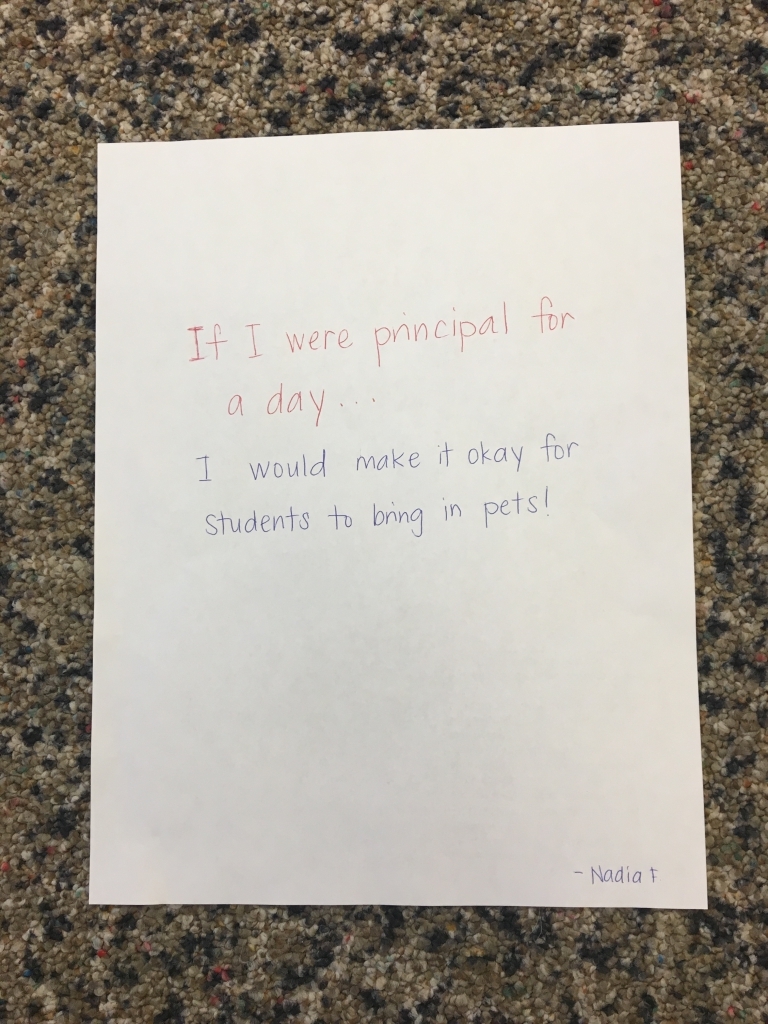 If I were principal for
a day...
I would make it okay for
students to bring in pets!
- Nadia F